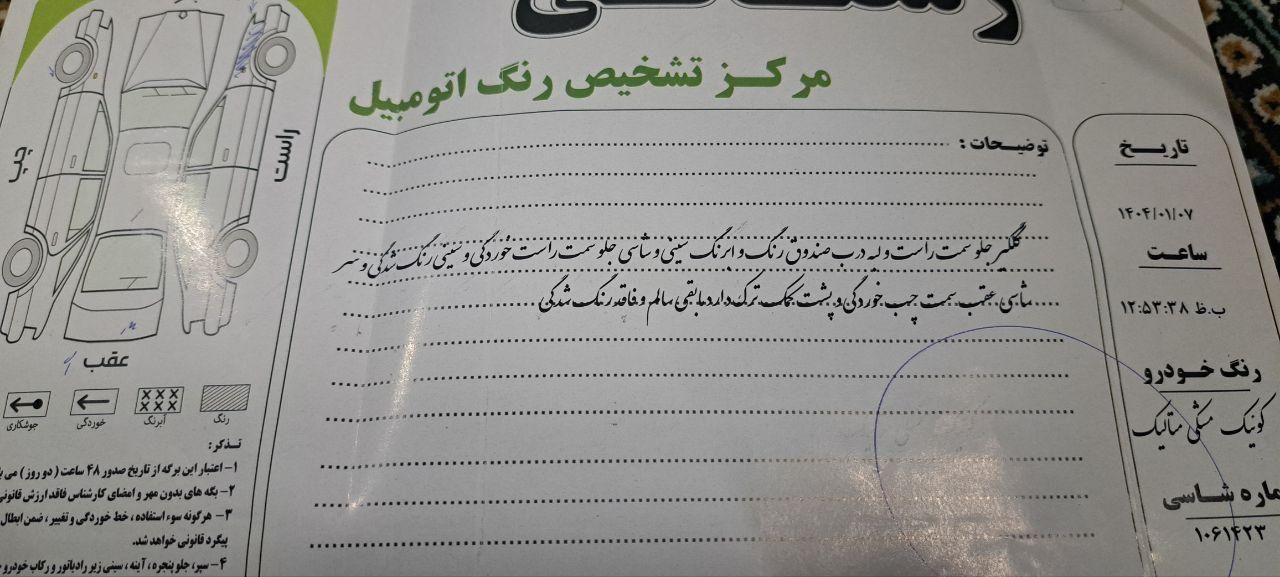 مرکز تشخیص رنگ اتومبیل
توضیحات :
گلگیر جلو سمت راست و لبه درب صندوق رنگ و ابرنگ سینی و شاسی جلو سمت راست خوردگی و سینی رنگ شدگی و سر
شاسی عقب سمت چپ خوردگی و پشت کمک ترک دارد مابقی سالم و فاقد رنگ شدگی
تاریخ
۱۴۰۴/۰۱/۰۷
ساعت
۱۲:۵۳:۳۸ ب.ظ
رنگ خودرو
کوئیک مشکی متالیک
ماره شاسی
۱۰۶۱۴۲۳
راست
چپ
عقب
رنگ
آبرنگ
خوردگی
جوشکاری
تذکر:
۱- اعتبار این برگه از تاریخ صدور ۴۸ ساعت ( دو روز ) می
۲- بگه های بدون مهر و امضای کارشناس فاقد ارزش قانونی
۳- هرگونه سوء استفاده ، خط خوردگی و تغییر ، ضمن ابطال
پیگرد قانونی خواهد شد.
۴- سپر، جلو پنجره ، آینه ، سینی زیر رادیاتور و رکاب خودرو